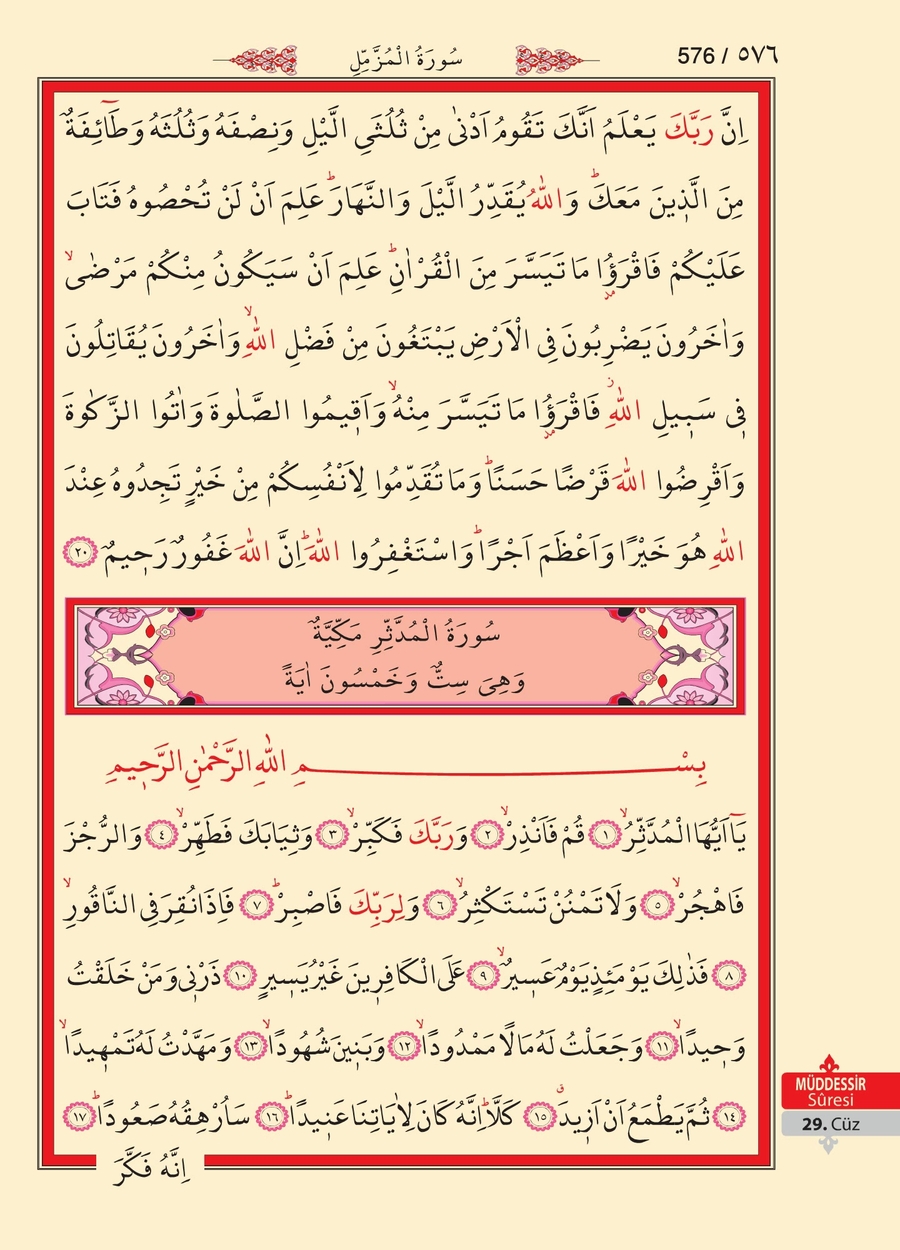 سُورَةُ الْمُزَّمِّلِ
576 / ٥٧٦
اِنَّ رَبَّكَ يَعْلَمُ اَنَّكَ تَقُومُ اَدْنٰى مِنْ ثُلُثَيِ الَّيْلِ وَنِصْفَهُ وَثُلُثَهُ وَطَٓائِفَةٌ
مِنَ الَّذ۪ينَ مَعَكَۜ وَاللّٰهُ يُقَدِّرُ الَّيْلَ وَالنَّهَارَۜ عَلِمَ اَنْ لَنْ تُحْصُوهُ فَتَابَ
عَلَيْكُمْ فَاقْرَؤُ۫ا مَا تَيَسَّرَ مِنَ الْقُرْاٰنِۜ عَلِمَ اَنْ سَيَكُونُ مِنْكُمْ مَرْضٰىۙ
وَاٰخَرُونَ يَضْرِبُونَ فِي الْاَرْضِ يَبْتَغُونَ مِنْ فَضْلِ اللّٰهِۙ وَاٰخَرُونَ يُقَاتِلُونَ
ف۪ي سَب۪يلِ اللّٰهِۘ فَاقْرَؤُ۫ا مَا تَيَسَّرَ مِنْهُۙ وَاَق۪يمُوا الصَّلٰوةَ وَاٰتُوا الزَّكٰوةَ
وَاَقْرِضُوا اللّٰهَ قَرْضًا حَسَنًاۜ وَمَا تُقَدِّمُوا لِاَنْفُسِكُمْ مِنْ خَيْرٍ تَجِدُوهُ عِنْدَ
اللّٰهِ هُوَ خَيْرًا وَاَعْظَمَ اَجْرًاۜ وَاسْتَغْفِرُوا اللّٰهَۜ اِنَّ اللّٰهَ غَفُورٌ رَح۪يمٌ ﴿٢٠﴾
سُورَةُ الْمُدَّثِّرِ مَكِّيَّةٌ
وَهِيَ سِتٌّ وَخَمْسُونَ اٰيَةً
بِسْمِ اللّٰهِ الرَّحْمٰنِ الرَّح۪يمِ
يَٓا اَيُّهَا الْمُدَّثِّرُۙ ﴿١﴾ قُمْ فَاَنْذِرْۙ ﴿٢﴾ وَرَبَّكَ فَكَبِّرْۙ ﴿٣﴾ وَثِيَابَكَ فَطَهِّرْۙ ﴿٤﴾ وَالرُّجْزَ
فَاهْجُرْۙ ﴿٥﴾ وَلَا تَمْنُنْ تَسْتَكْثِرُۙ ﴿٦﴾ وَلِرَبِّكَ فَاصْبِرْۜ ﴿٧﴾ فَاِذَا نُقِرَ فِي النَّاقُورِۙ
﴿٨﴾ فَذٰلِكَ يَوْمَئِذٍ يَوْمٌ عَس۪يرٌۙ ﴿٩﴾ عَلَى الْكَافِر۪ينَ غَيْرُ يَس۪يرٍ ﴿١٠﴾ ذَرْن۪ي وَمَنْ خَلَقْتُ
وَح۪يدًاۙ ﴿١١﴾ وَجَعَلْتُ لَهُ مَالًا مَمْدُودًاۙ ﴿١٢﴾ وَبَن۪ينَ شُهُودًاۙ ﴿١٣﴾ وَمَهَّدْتُ لَهُ تَمْه۪يدًاۙ
﴿١٤﴾ ثُمَّ يَطْمَعُ اَنْ اَز۪يدَۗ ﴿١٥﴾ كَلَّاۜ اِنَّهُ كَانَ لِاٰيَاتِنَا عَن۪يدًاۜ ﴿١٦﴾ سَاُرْهِقُهُ صَعُودًاۜ ﴿١٧﴾
اِنَّهُ فَكَّرَ
MÜDDESSİR
Sûresi
29. Cüz